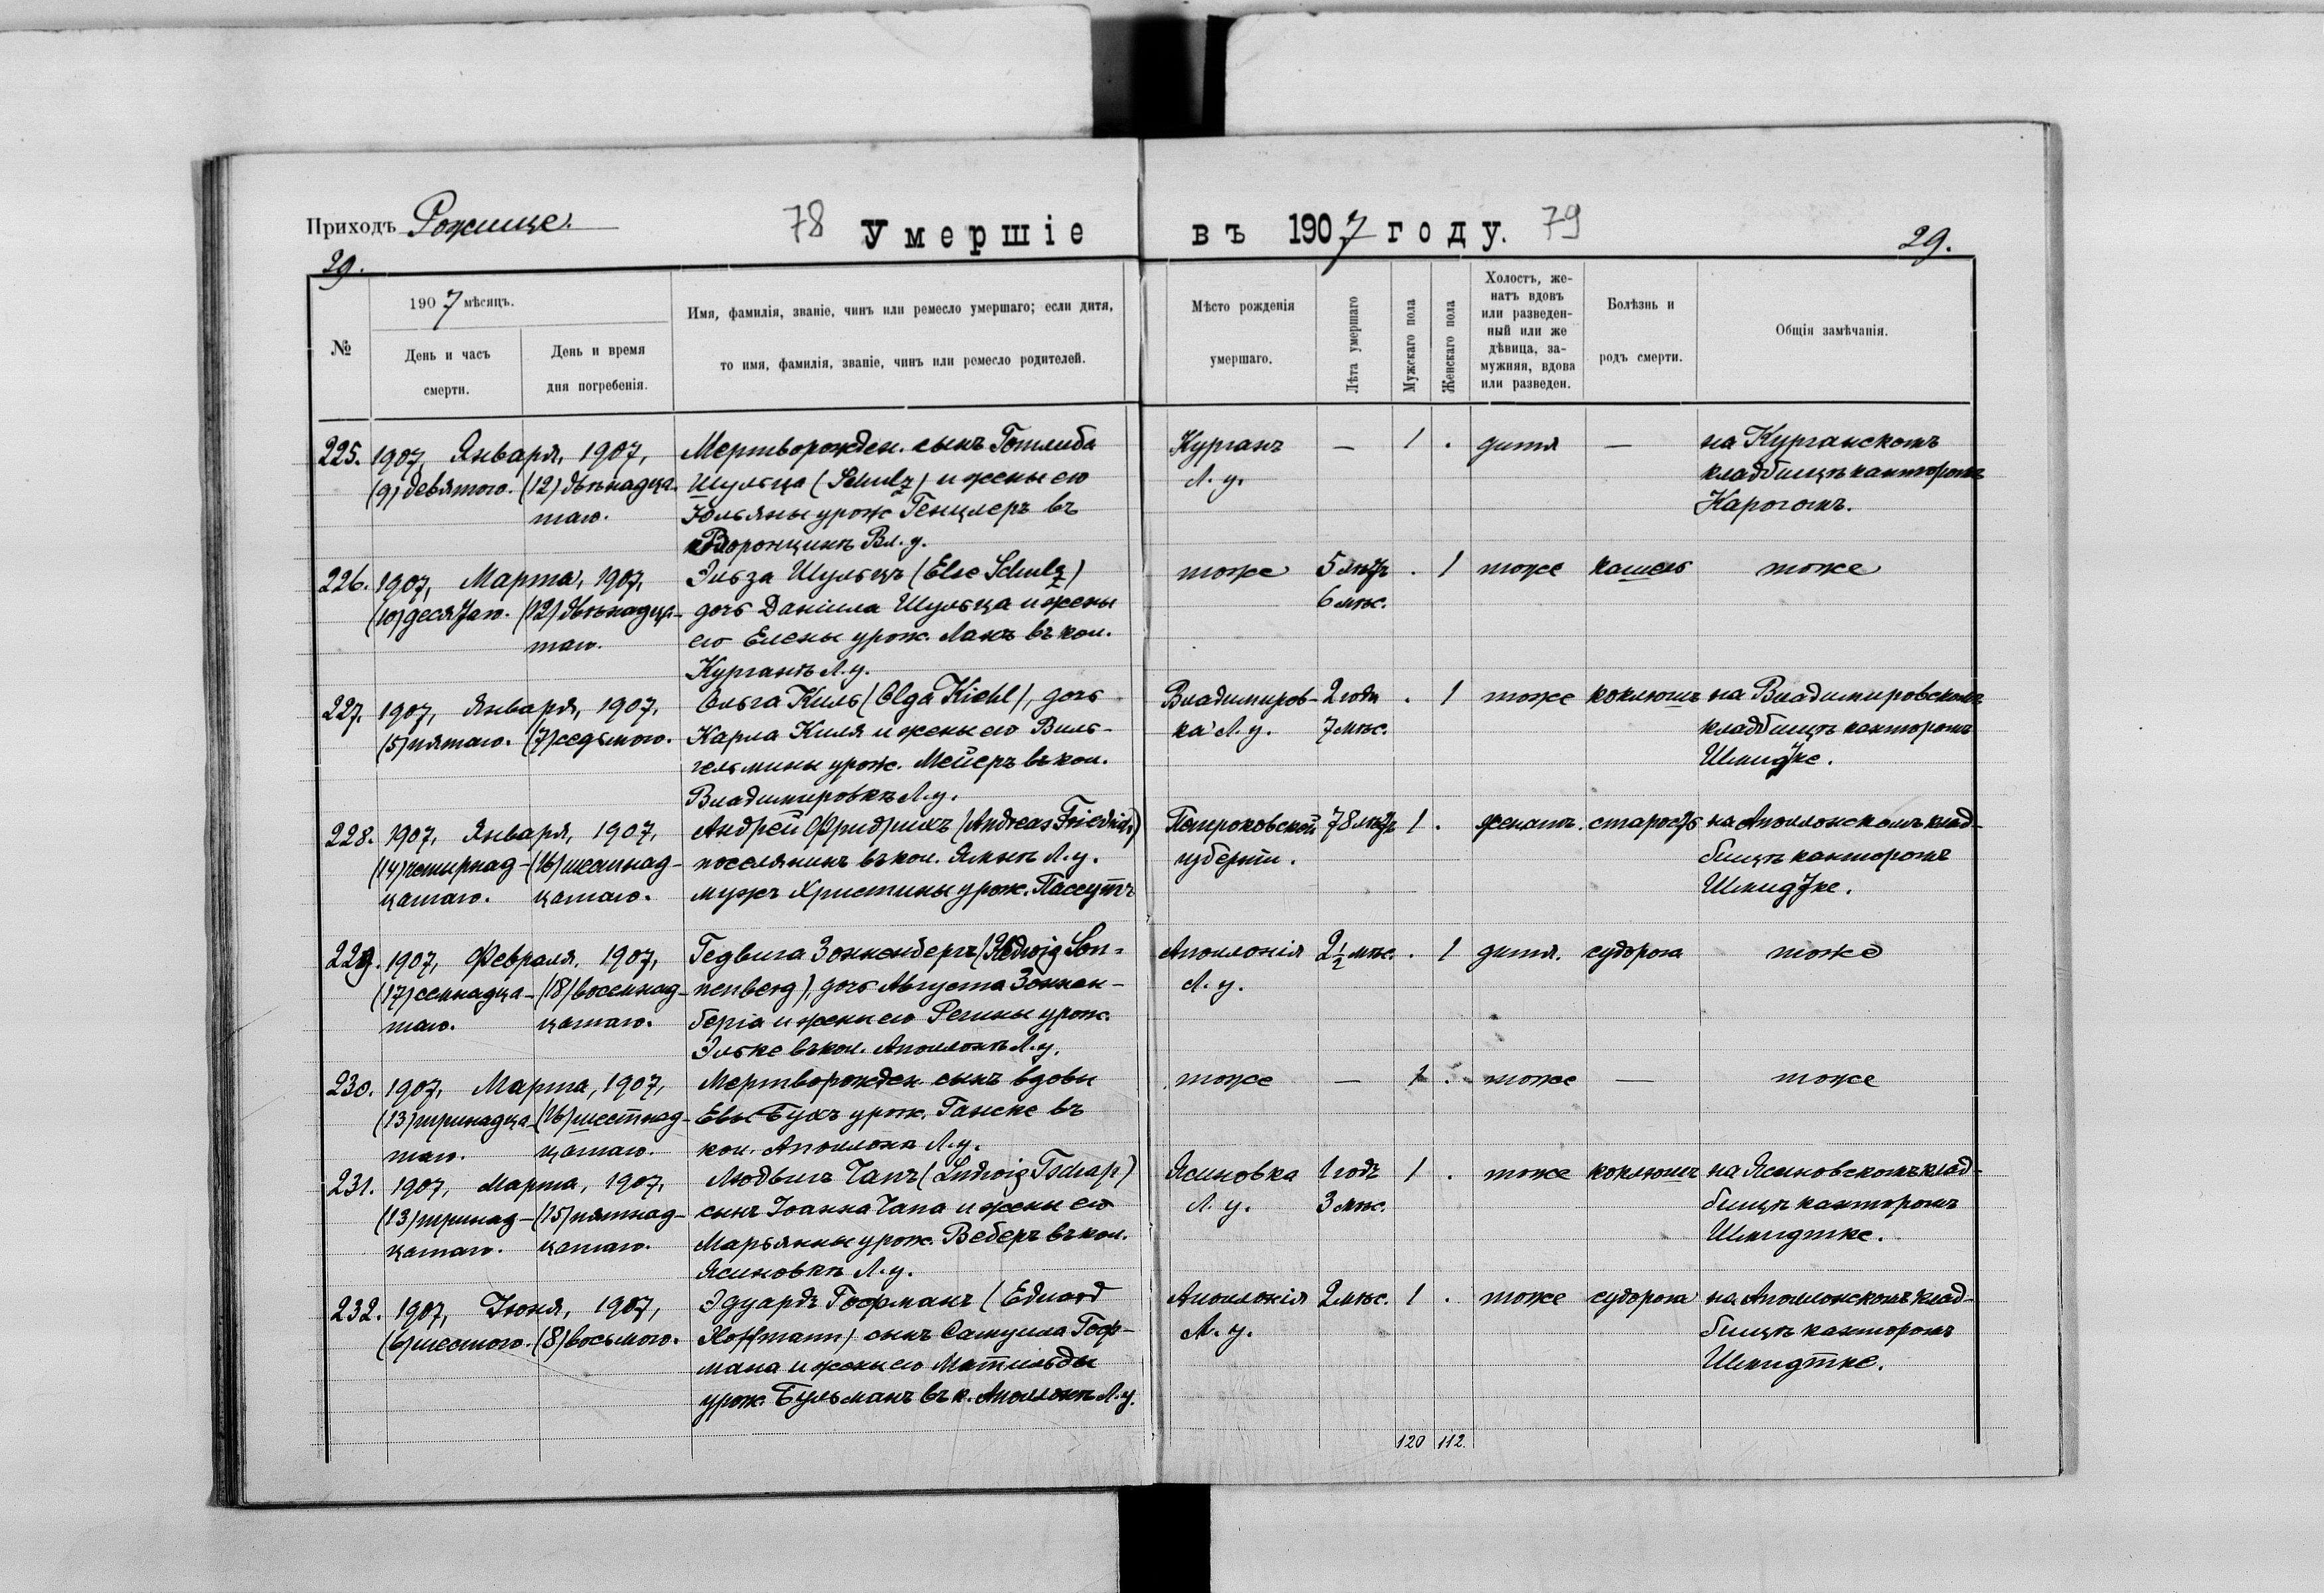 Приходъ Рожище.
78 Умершіе
въ 1907 году. 79
29.
29.
№
1907 мѣсяцъ.
День и часъ
смерти.
День и время
дня погребенія.
Имя, фамилія, званіе, чинъ или ремесло умершаго; если дитя,
то имя, фамилія, званіе, чинъ или ремесло родителей.
Мѣсто рожденія
умершаго.
Лѣта умершаго
Мужскаго пола
Женскаго пола
Холостъ, же-
натъ вдовъ
или разведен-
ный или же
дѣвица, за-
мужняя, вдова
или разведен.
Болѣзнь и
родъ смерти.
Общія замѣчанія.
225. 1907, Января, 1907, Мертворожден. сынъ Готлиба Курганъ — 1 . дитя — на Курганскомъ
(9) девятаго. (12) двѣнадца- Шульца (Schulz) и жены его Л. у. кладбищѣ канторомъ
таго. Юльяны урож. Генцлеръ въ Карогомъ.
Воронцинѣ Вл. у.
226. 1907, Марта, 1907, Эльза Шульцъ (Else Schulz) тоже 5 лѣтъ . 1 тоже кашель тоже
(10) десятаго. (12) двѣнадца- дочь Даніила Шульца и жены 6 мѣс.
таго. его Елены урож. Лакъ въ кол.
Курганъ Л. у.
227. 1907, Января, 1907, Ольга Киль (Olga Kiehl), дочь Владимиров- 2 года . 1 тоже коклюшъ на Владимировскомъ
(5) пятаго. (7) седьмого. Карла Киля и жены его Виль- ка Л. у. 7 мѣс. кладбищѣ канторомъ
гельмины урож. Мейеръ въ кол. Шмидтке.
Владимировкѣ Л. у.
228. 1907, Января, 1907, Андрей Фридрихъ (Andreas Friedrich) Петроковской 78 лѣтъ 1 . женатъ. старость на Аполлонскомъ клад-
(14) четырнад- (16) шестнад- поселянинъ въ кол. Ямкѣ Л. у. губерніи. бищѣ канторомъ
цатаго. цатаго. мужъ Христины урож. Пассутъ Шмидтке.
229. 1907, Февраля, 1907, Гедвига Зонненбергъ (Hedwig Son- Аполлонія 2 1/2 мѣс. . 1 дитя. судорога тоже
(17) семнадца- (18) восемнад- nenberg), дочь Августа Зоннен- Л. у.
таго. цатаго. берга и жены его Регины урож.
Эльке въ кол. Аполлонѣ Л. у.
230. 1907, Марта, 1907, Мертворожден. сынъ вдовы тоже — 1 . тоже — тоже
(13) тринадца- (16) шестнад- Евы Бухъ урож. Ганске въ
таго. цатаго. кол. Аполлонѣ Л. у.
231. 1907, Марта, 1907, Людвигъ Чапъ (Ludwig Tschap) Ясиновка 1 годъ 1 . тоже коклюшъ на Ясиновскомъ клад-
(13) тринад- (15) пятнад- сынъ Іоанна Чапа и жены его Л. у. 3 мѣс. бищѣ канторомъ
цатаго. цатаго. Марьянны урож. Веберъ въ кол. Шмидтке.
Ясиновкѣ Л. у.
232. 1907, Іюня, 1907, Эдуардъ Гофманъ (Eduard Аполлонія 2 мѣс. 1 . тоже судорога на Аполлонскомъ клад-
(6) шестого. (8) восьмого. Hoffmann) сынъ Самуила Гоф- Л. у. бищѣ канторомъ
мана и жены его Матильды Шмидтке.
урож. Бульманъ въ к. Аполлонѣ Л. у.
120 112